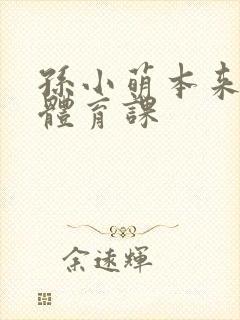 孫小萌本来
體育課
余遠輝